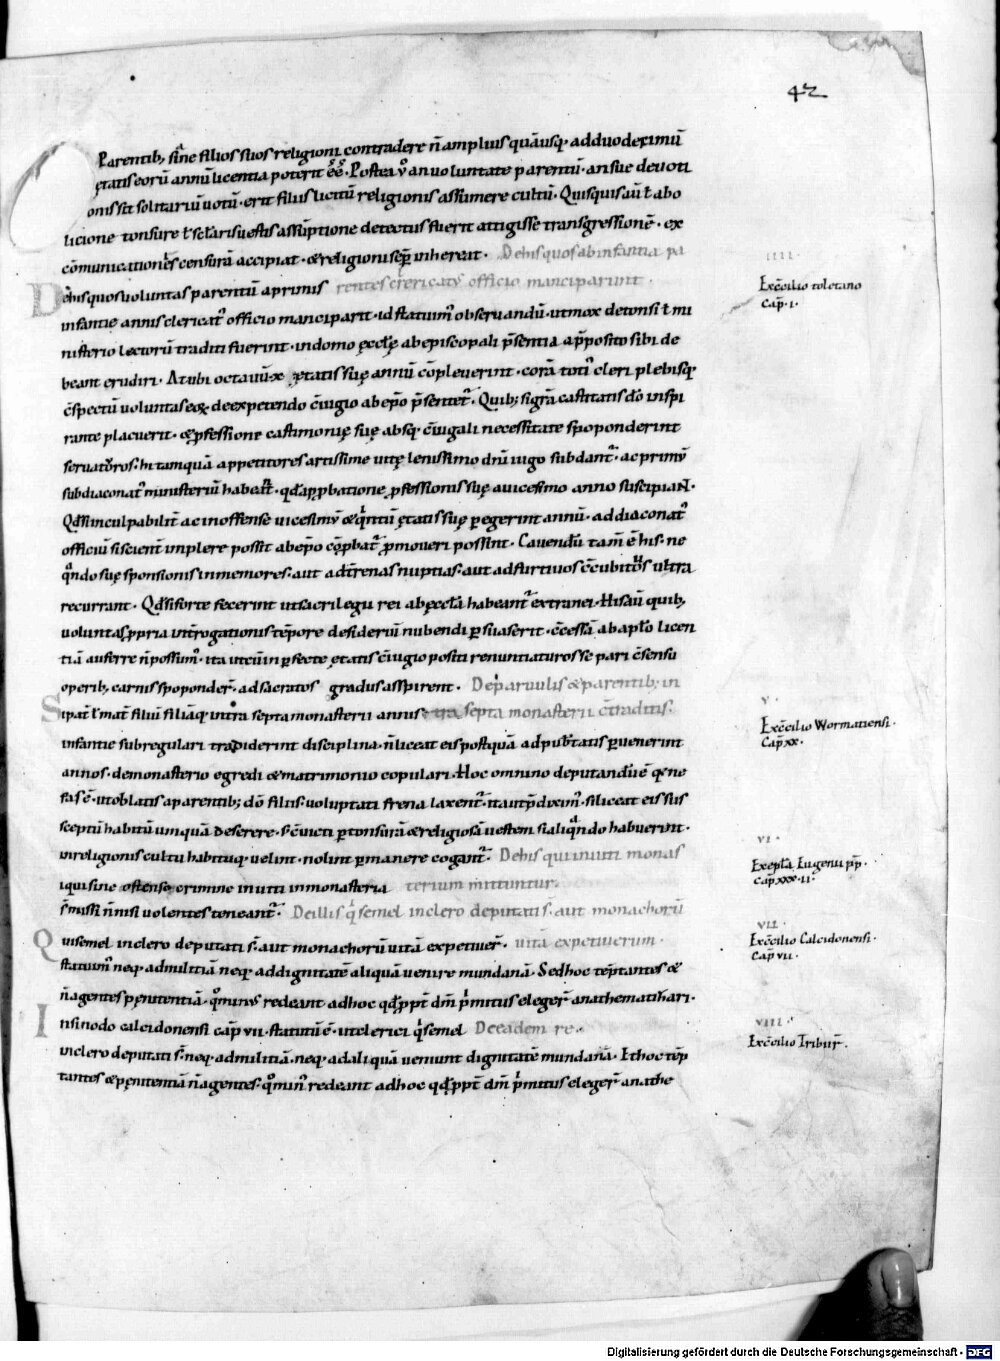 42
Parentib; siñe filios suos religioni contradere ñ amplius quā usq; ad duodecimū
ętatis eorū annū licentia poterit ēē. Postea ṽ an uoluntate parentū. an sue deuoti
onis sit solitariū uotū. erit filiis licitū religionis assumere cultū. Quisquis aū ł abo
licione tonsure ł sęłaris uestis assūptione detectus fuerit attigisse transgressionē. ex
cōmunicationis censurā accipiat. & religioni semp̄ inhereat. De his quos ab infantia pa
De his quos uoluntas parentū a primis rentes clericatꝰ officio manciparint.
infantie annis clericatꝰ officio manciparit. id statuimꝰ obseruandū. ut mox detonsi ł mi
nisterio lectorū traditi fuerint. in domo ęcclę ab episcopali p̄sentia a p̄posito sibi de
beant erudiri. At ubi octauū x ętatis suę annū cōpleuerint. corā totiꝰ cleri plebisq;
c̄spectu uoluntas eoꝝ de expetendo c̄iugio ab ep̄o p̄sentetꝰ. Quib; si gr̄a castitatis dō inspi
rante placuerit. & p̄fessione castimonię suę absq; c̄iugali necessitate spoponderint
seruaturos. hi tamquā appetitores artissime uitę lenissimo dñi iugo subdantꝰ. ac primū
subdiaconatꝰ ministeriū habeāt. qđ a p̄batione p̄fessionis suę a uicesimo anno suscipiant.
Qđ si inculpabilit̄ ac inoffense uicesimū & qntū ętatis suę pegerint annū. ad diaconatꝰ
officiū si scient̄ implere possit ab ep̄o cōpbatꝰ pmoueri possint. Cauendū tam̄ ē his. ne
qndo suę sponsionis inmemores. aut ad t̄renas nuptias. aut ad furtiuos c̄cubitus ultra
recurrant. Qđ si forte fecerint ut sacrilegii rei ab ęccła habeantꝰ extranei. His aū quib;
uoluntas ppria int̄rogationis tēpore desideriū nubendi psuaserit. c̄cessā ab apłō licen
tiā auferre ñ possumꝰ. ita ut cū in pfecte ętatis c̄iugio positi renuntiaturos se pari c̄sensu
operib; carnis spoponder̄. ad sacratos gradus asspirent. De paruulis & parentib; in
Si pat̄ ł mat̄ filiū filiāq; intra septa monasterii annis tra septa monasterii c̄traditis.
infantie sub regulari tradiderint disciplina. ñ liceat eis postquā ad pubtatis puenerint
annos. de monasterio egredi & matrimonio copulari. Hoc omnino deputandū ē q̄ ne
fas ē. ut oblatis a parentib; dō filiis. uoluptati frena laxent̄. ita ut p̄diximꝰ. si liceat eis sus
sceptū habitū umquā deserere. S; c̄uicti p tonsurā & religiosā uestem si aliqndo habuerint.
ut religionis cultu habituq; uelint. nolint pmanere cogantꝰ. De his qui inuiti monas
iqui sine ostense crimine inuiti in monasteria terium mittuntur.
s̄ missi ñ nisi uolentes teneantꝰ. De illis q semel in clero deputati s̄. aut monachorū
Qui semel in clero deputati s̄. aut monachorū uitā expetiuer̄. uitā expetiuerunt.
statuimꝰ neq; ad militiā neq; ad dignitatē aliquā uenire mundanā. Sed hoc tēptantes &
ñ agentes p̄penitentiā. qōminꝰ redeant ad hoc qđ ppt̄ dm̄ pmitus eleger̄ anathematizari.
In sinodo calcidonensi cap̄ vii. statutū ē. ut clerici q semel De eadem re.
in clero deputati s̄. neq; ad militiā. neq; ad aliquā ueniunt dignitatē mundanā. Et hoc tēp
tantes & penitentiā ñ agentes. qōminꝰ redeant ad hoc qđ ppt̄ dm̄ pmitus eleger̄ anathe
IIII.
Ex c̄cilio toletano
cap̄. i.
V.
Ex c̄cilio Wormatiensi.
Cap̄ xx.
VI.
Ex epła Eugenii pp̄.
cap̄ xxx. ii.
VII.
Ex c̄cilio Calcidonensi.
Cap̄ vii.
VIII.
Ex c̄cilio Tribur̄.
Digitalisierung gefördert durch die Deutsche Forschungsgemeinschaft - DFG